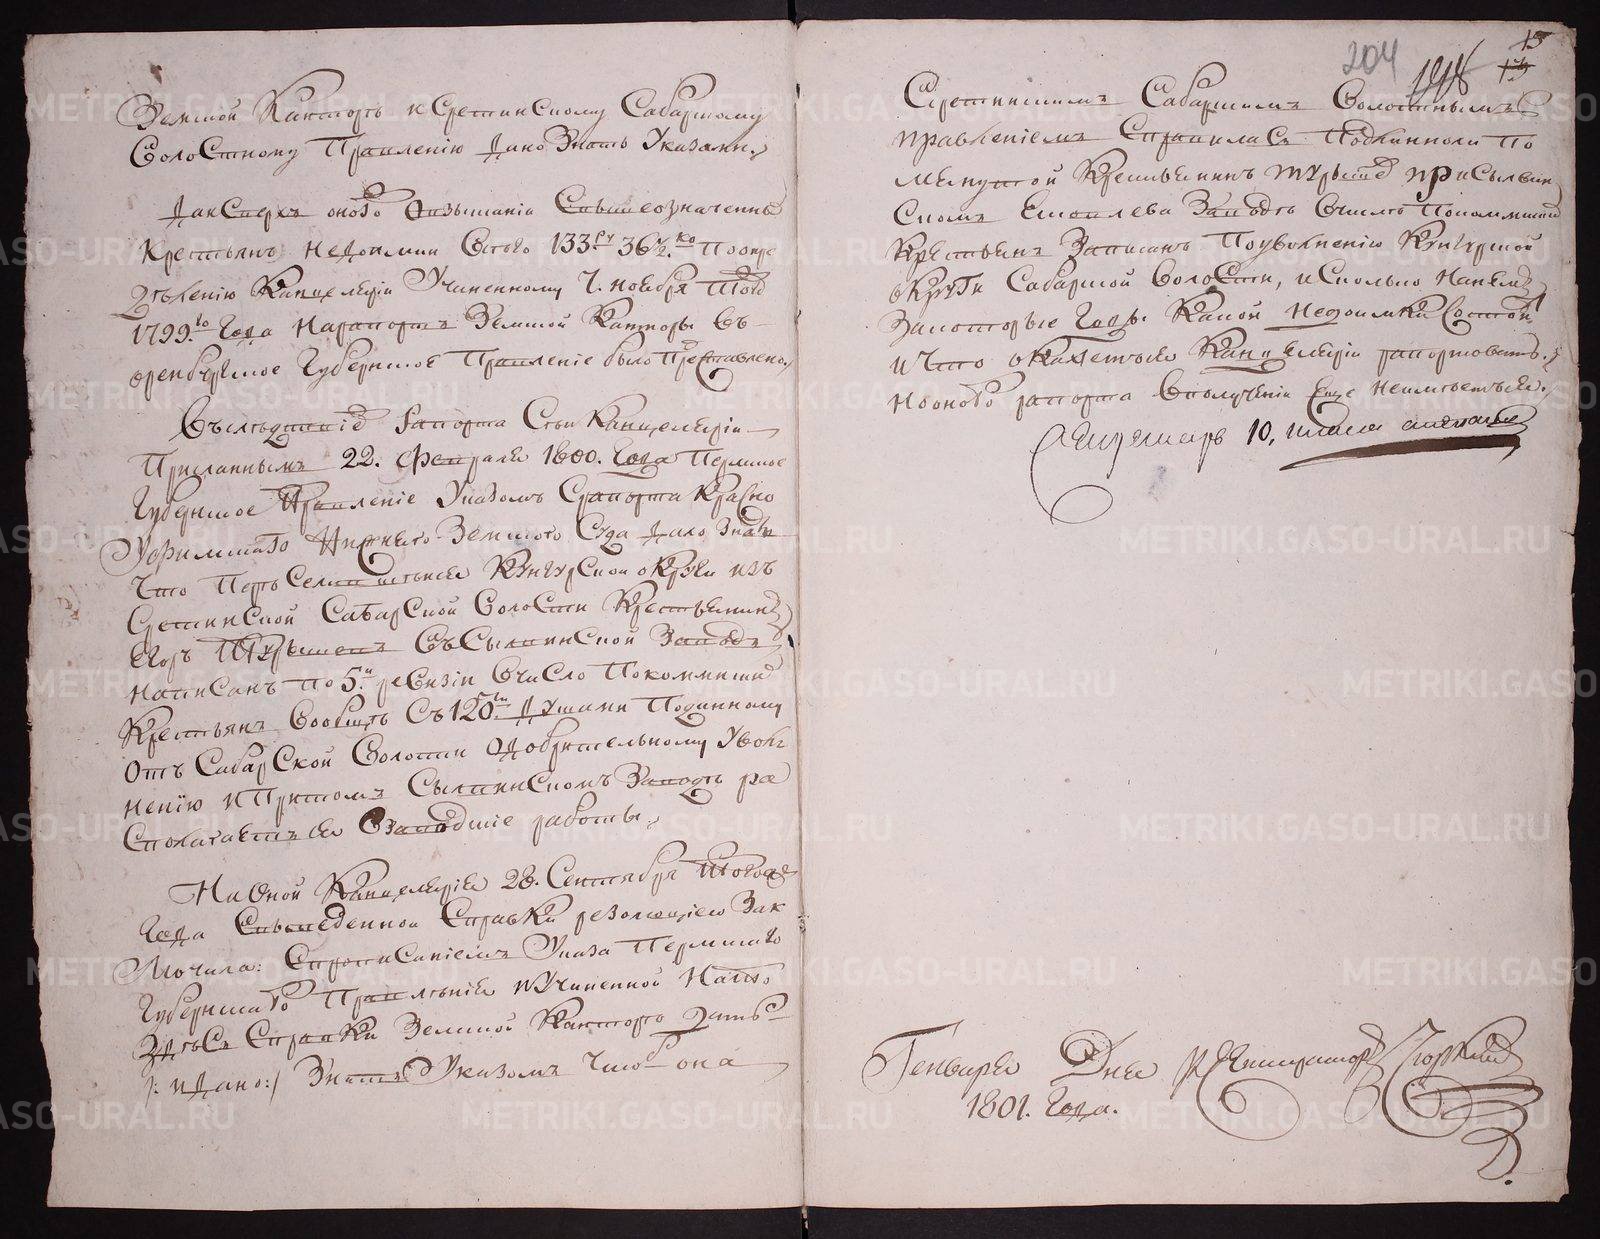 Земской Канторѣ и Сретинскому Сабарскому
Волостному Правленію дано Знать Указами.
Да и Сверхъ оного Овзысканіи Свышеозначенныхъ
Крестьянъ недоимки Всего 133.ру 36½.ко Поопре
деленію Канцеляріи Учиненному 7. ноября Того
1799.го Года Нарапортъ Земской Канторы Въ
оренбургское Губернское Правленіе было Представлено.
Вследствіе рапорта Сей Канцеляріи
Присланнымъ 22. Февраля 1800. Года Пермское
Губернское Правленіе Указомъ Срапорта Красно
Уфимскаго Нижняго Земскаго Суда Дало Знать
Что Переселившейся Кунгурской округи изъ
Сретинской Сабарской Волости Крестьянинъ
Егоръ Турышевъ Въ Сылвинской Заводъ
написанъ по 5.й ревизіи Вчисло Покомянной
Крестьянъ Вообще Съ 120.ю Душами Поданному
Отъ Сабарской Волости Одобрительному Уволь
ненію и Притомъ Сылвинскомъ Заводе ра
сполагается Взаводскіе работы.
На Оной Канцелярія 28. Сентября Тогоже
Года Свыведенной Справки резолюціею Зак
Лючила: Спрописаніемъ Указа Пермскаго
Губернскаго Правленія и Учиненной На то
Здесь Справки Земской Канторе Дать
/: и Дано :/ Знать Указомъ Чтоб она
204
15
13
Сретинскимъ Сабарскимъ Волостнымъ
правленіемъ Справилась Подлинноли По
мянутой Крестьянинъ Турышевъ при Сылвин
Скомъ Заводе Вчисле
Крестьянъ Записанъ Поуволненію Кунгурской
округи Сабарской Волости, и Сколько На немъ
Закоторые Годы Какой недоимки Состоитъ
и Что окажется Канцеляріи рапортовать.
Но оного рапорта Вполученіи Еще Неимеется.
10,
Генваря Дня Регистраторъ
1801. Года.